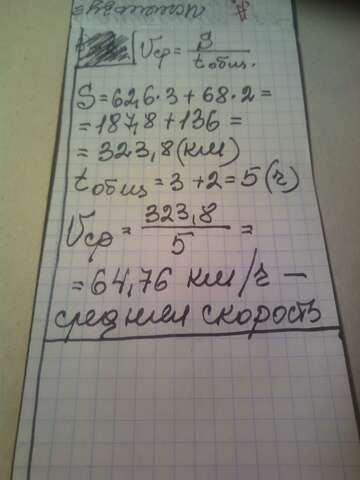 Vср = S / tобщ.
S = 62,6·3 + 68·2 =
= 187,8 + 136 =
= 323,8 (км)
tобщ = 3 + 2 = 5 (ч)
Vср = 323,8 / 5 =
= 64,76 км/ч —
средняя скорость